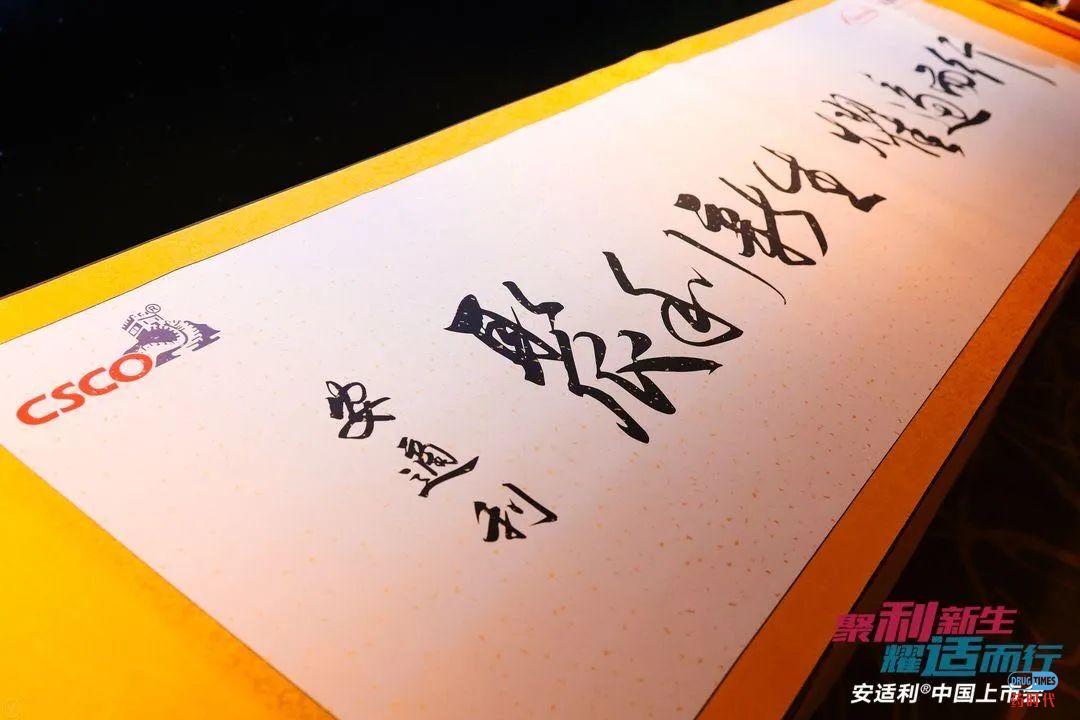 聚利新生 耀適而行
安適利
CSCO
®
聚利新生
耀适而行
安适利®中国上市会
DRUG TIMES
药时代